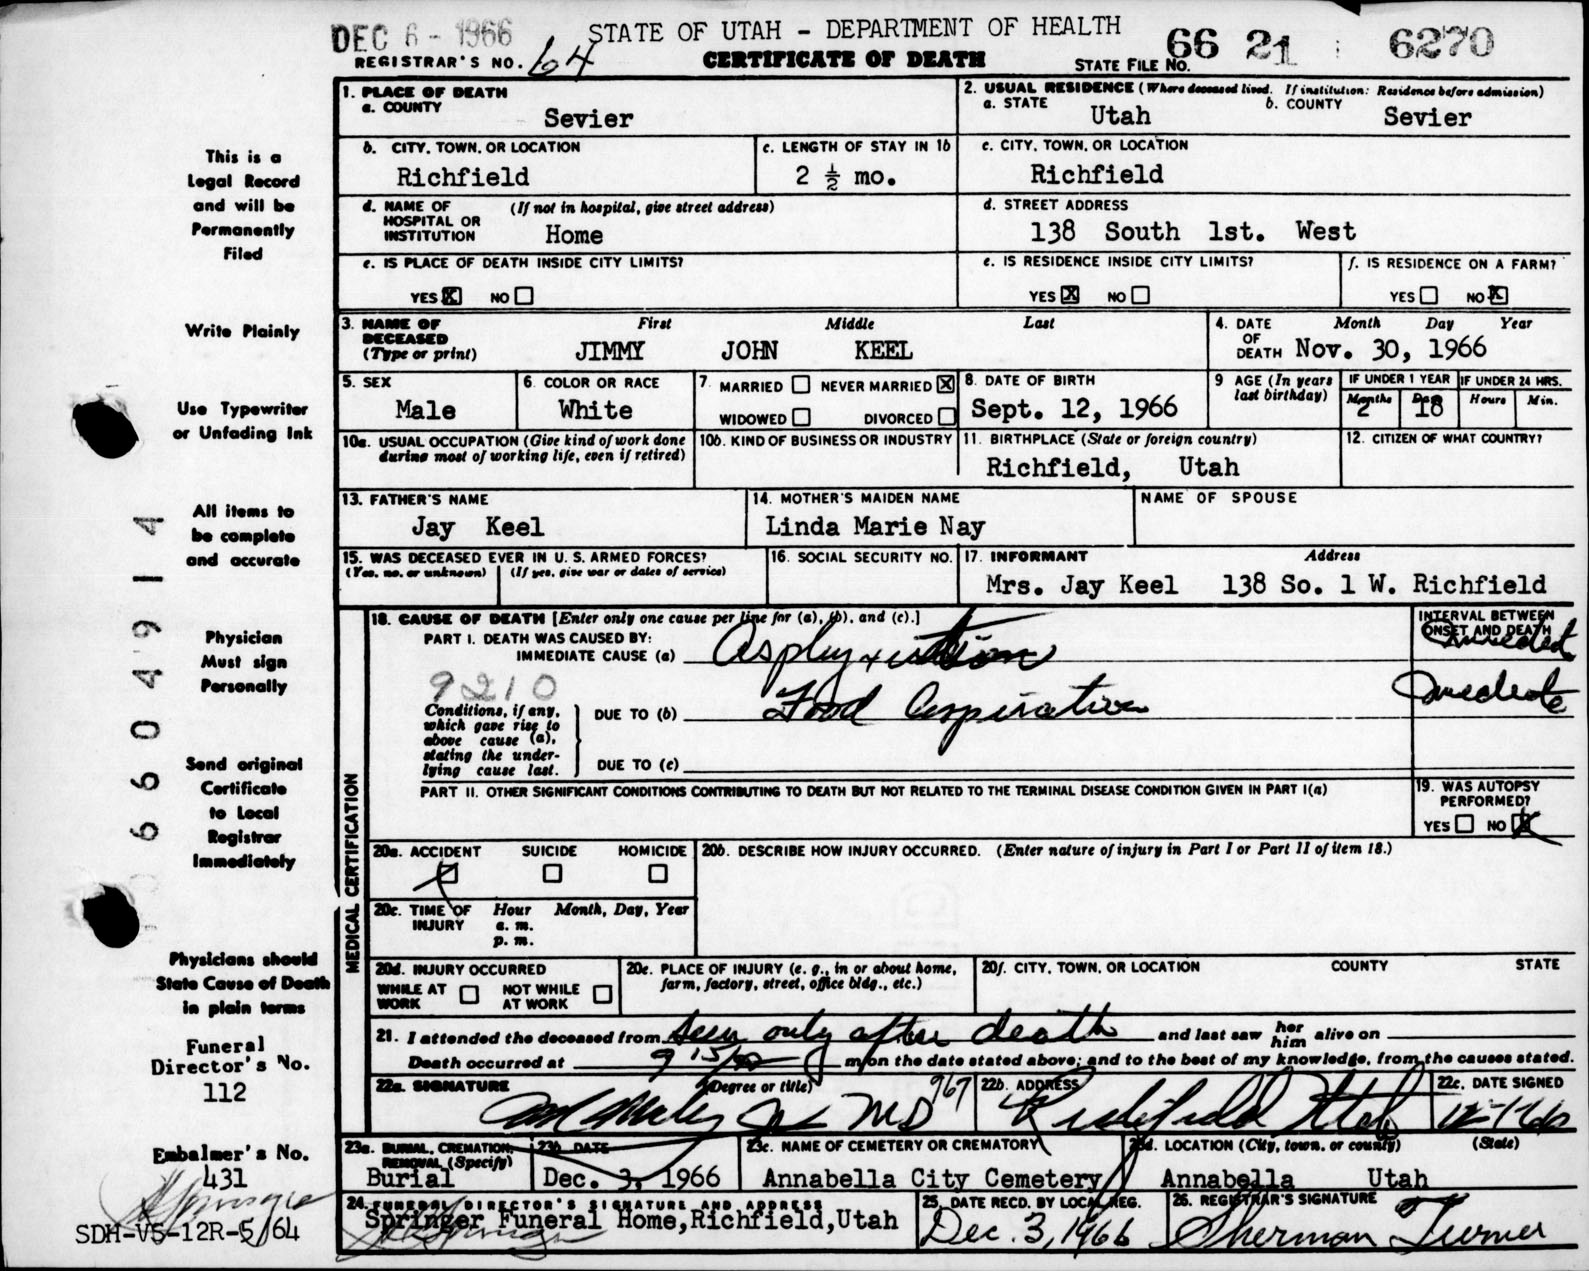 DEC 6 - 1966
STATE OF UTAH - DEPARTMENT OF HEALTH
REGISTRAR'S NO. 64
CERTIFICATE OF DEATH
STATE FILE NO. 66 21 6270
1. PLACE OF DEATH
a. COUNTY
Sevier
2. USUAL RESIDENCE (Where deceased lived. If institution: Residence before admission)
a. STATE Utah b. COUNTY Sevier
b. CITY, TOWN, OR LOCATION
Richfield
c. LENGTH OF STAY IN 1b
2 ½ mo.
c. CITY, TOWN, OR LOCATION
Richfield
d. NAME OF HOSPITAL OR INSTITUTION (If not in hospital, give street address)
Home
d. STREET ADDRESS
138 South 1st. West
e. IS PLACE OF DEATH INSIDE CITY LIMITS?
YES X NO
e. IS RESIDENCE INSIDE CITY LIMITS?
YES X NO
f. IS RESIDENCE ON A FARM?
YES NO X
3. NAME OF DECEASED (Type or print)
First Middle Last
JIMMY JOHN KEEL
4. DATE OF DEATH Month Day Year
Nov. 30, 1966
5. SEX
Male
6. COLOR OR RACE
White
7. MARRIED NEVER MARRIED X
WIDOWED DIVORCED
8. DATE OF BIRTH
Sept. 12, 1966
9 AGE (In years last birthday)
IF UNDER 1 YEAR
Months Days
2 18
IF UNDER 24 HRS.
Hours Min.
10a. USUAL OCCUPATION (Give kind of work done during most of working life, even if retired)
10b. KIND OF BUSINESS OR INDUSTRY
11. BIRTHPLACE (State or foreign country)
Richfield, Utah
12. CITIZEN OF WHAT COUNTRY?
13. FATHER'S NAME
Jay Keel
14. MOTHER'S MAIDEN NAME
Linda Marie Nay
NAME OF SPOUSE
15. WAS DECEASED EVER IN U. S. ARMED FORCES?
(Yes, no, or unknown) (If yes, give war or dates of service)
16. SOCIAL SECURITY NO.
17. INFORMANT Address
Mrs. Jay Keel 138 So. 1 W. Richfield
MEDICAL CERTIFICATION
18. CAUSE OF DEATH [Enter only one cause per line for (a), (b), and (c).]
PART I. DEATH WAS CAUSED BY:
IMMEDIATE CAUSE (a)
INTERVAL BETWEEN ONSET AND DEATH
9210
Conditions, if any, which gave rise to above cause (a), stating the underlying cause last.
DUE TO (b) Food Aspiration
DUE TO (c)
PART II. OTHER SIGNIFICANT CONDITIONS CONTRIBUTING TO DEATH BUT NOT RELATED TO THE TERMINAL DISEASE CONDITION GIVEN IN PART I(a)
19. WAS AUTOPSY PERFORMED?
YES NO X
20a. ACCIDENT SUICIDE HOMICIDE
20b. DESCRIBE HOW INJURY OCCURRED. (Enter nature of injury in Part I or Part II of item 18.)
20c. TIME OF INJURY Hour Month, Day, Year
a. m.
p. m.
20d. INJURY OCCURRED
WHILE AT WORK NOT WHILE AT WORK
20e. PLACE OF INJURY (e. g., in or about home, farm, factory, street, office bldg., etc.)
20f. CITY, TOWN, OR LOCATION COUNTY STATE
21. I attended the deceased from seen only after death and last saw her him alive on
Death occurred at 9 15 m on the date stated above; and to the best of my knowledge, from the causes stated.
22a. SIGNATURE (Degree or title)
Jr MD 967
22b. ADDRESS
Richfield Utah
22c. DATE SIGNED
12-1-66
23a. BURIAL, CREMATION, REMOVAL (Specify)
Burial
23b DATE
Dec. 3, 1966
23c. NAME OF CEMETERY OR CREMATORY
Annabella City Cemetery
23d. LOCATION (City, town, or county) (State)
Annabella Utah
24. FUNERAL DIRECTOR'S SIGNATURE AND ADDRESS
Springer Funeral Home, Richfield, Utah
25. DATE RECD. BY LOCAL REG.
Dec. 3, 1966
26. REGISTRAR'S SIGNATURE
Sherman Turner
This is a
Legal Record
and will be
Permanently
Filed
Write Plainly
Use Typewriter
or Unfading Ink
All items to
be complete
and accurate
Physician
Must sign
Personally
Send original
Certificate
to Local
Registrar
Immediately
Physicians should
State Cause of Death
in plain terms
Funeral
Director's No.
112
Embalmer's No.
431
SDH-VS-12R-5/64
6604914